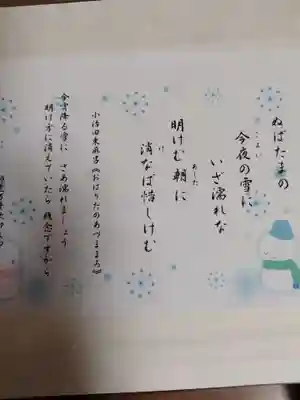 ぬばたまの
今夜の雪に
こよい
いざ濡れな
明けむ朝に
あした
消なば惜しけむ
け
小治田東麻呂(おはりだのあづままろ)
今宵降る雪に さあ濡れましょう
明け方に消えていたら 残念ですから